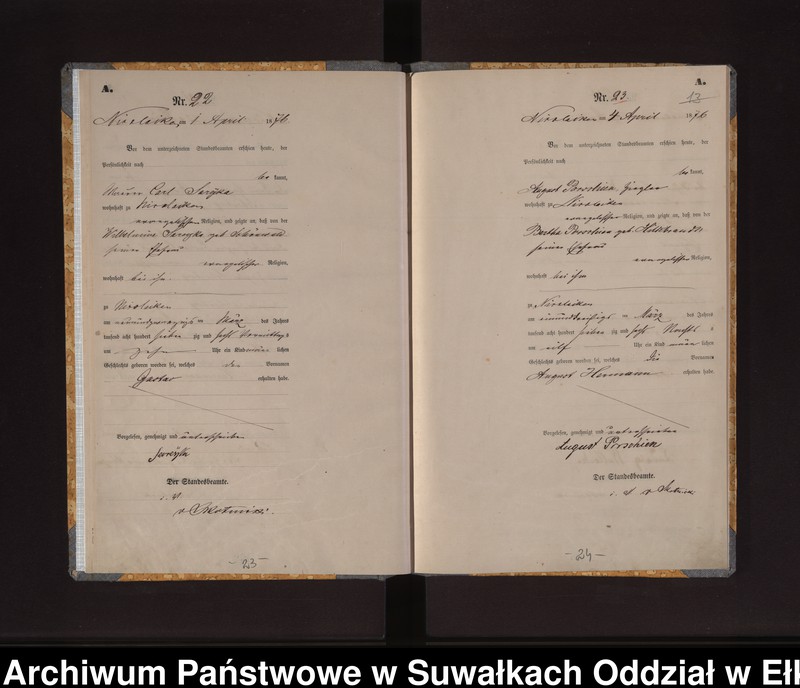 A.
Nr. 22
Nikolaiken 1 April 1876.
Vor dem unterzeichneten Standesbeamten erschien heute, der
Persönlichkeit nach
be kannt,
Carl
wohnhaft zu Nikolaiken
evangelischer Religion, und zeigte an, daß von der
Wilhelmine geb.
seiner Ehefrau
evangelischer Religion,
wohnhaft bei ihm
zu Nikolaiken
am neunundzwanzigsten März des Jahres
tausend acht hundert sieben zig und sechs Vormittags
um zehn Uhr ein Kind männlichen
Geschlechts geboren worden sei, welches den Vornamen
Gustav
erhalten habe.
Vorgelesen, genehmigt und unterschrieben
Der Standesbeamte.
- 23 -
A.
Nr. 23
12
Nikolaiken 4 April 1876
Vor dem unterzeichneten Standesbeamten erschien heute, der
Persönlichkeit nach
be kannt,
August Ziegler
wohnhaft zu Nikolaiken
evangelischer Religion, und zeigte an, daß von der
Bertha geb. Hildebrandt
seiner Ehefrau
evangelischer Religion,
wohnhaft bei ihm
zu Nikolaiken
am einunddreißigsten März des Jahres
tausend acht hundert sieben zig und sechs Nachts
um elf Uhr ein Kind männlichen
Geschlechts geboren worden sei, welches die Vornamen
August Hermann
erhalten habe.
Vorgelesen, genehmigt und unterschrieben
August Porschien
Der Standesbeamte.
- 24 -
Archiwum Państwowe w Suwałkach Oddział w Eł